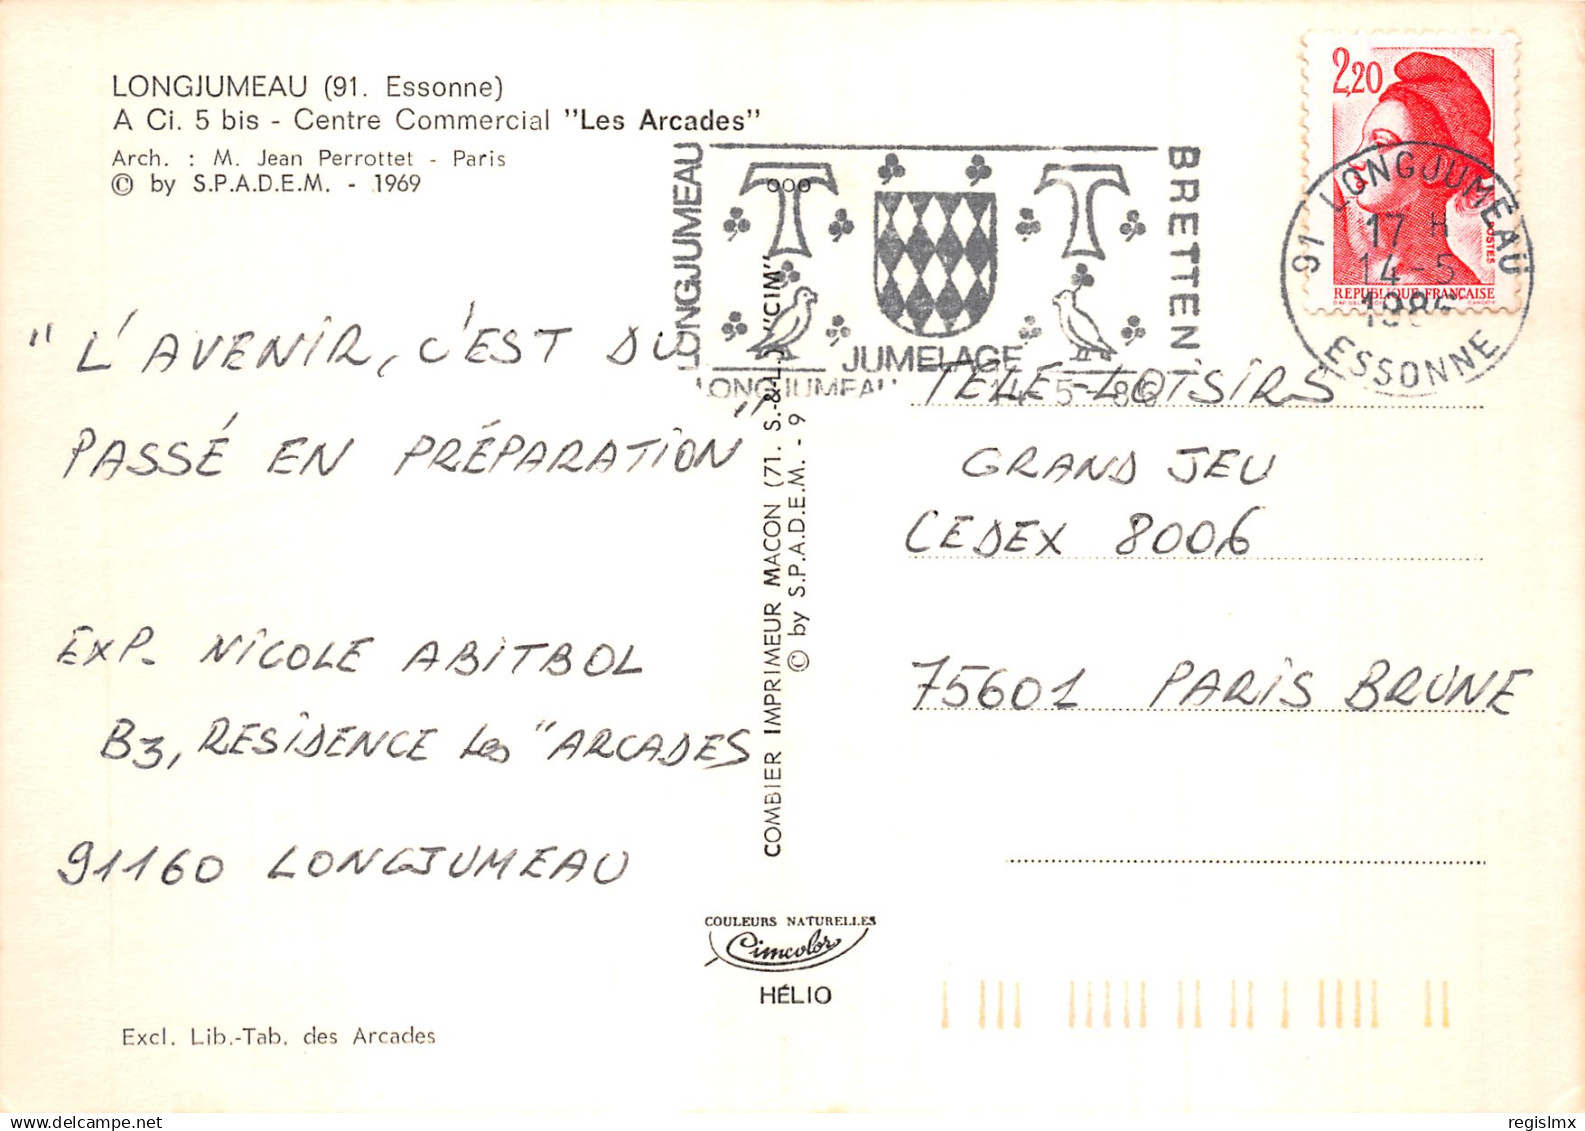 LONGJUMEAU (91. Essonne)
A Ci. 5 bis - Centre Commercial "Les Arcades"
Arch. : M. Jean Perrottet - Paris
© by S.P.A.D.E.M. - 1969
2,20
POSTES
REPUBLIQUE FRANÇAISE
91 LONGJUMEAU
17 H
14-5
1986
ESSONNE
LONGJUMEAU
BRETTEN
JUMELAGE
LONGJUMEAU 14-5-86
"L'AVENIR, C'EST DU
PASSÉ EN PRÉPARATION"
EXP. NICOLE ABITBOL
B3, RESIDENCE Les "ARCADES
91160 LONGJUMEAU
COMBIER IMPRIMEUR MACON (71. S.-&-L.) "CIM"
© by S.P.A.D.E.M. - 9
TELE-LOISIRS
GRAND JEU
CEDEX 8006
75601 PARIS BRUNE
COULEURS NATURELLES
Cimcolor
HÉLIO
Excl. Lib.-Tab. des Arcades
delcampe.net
regislmx